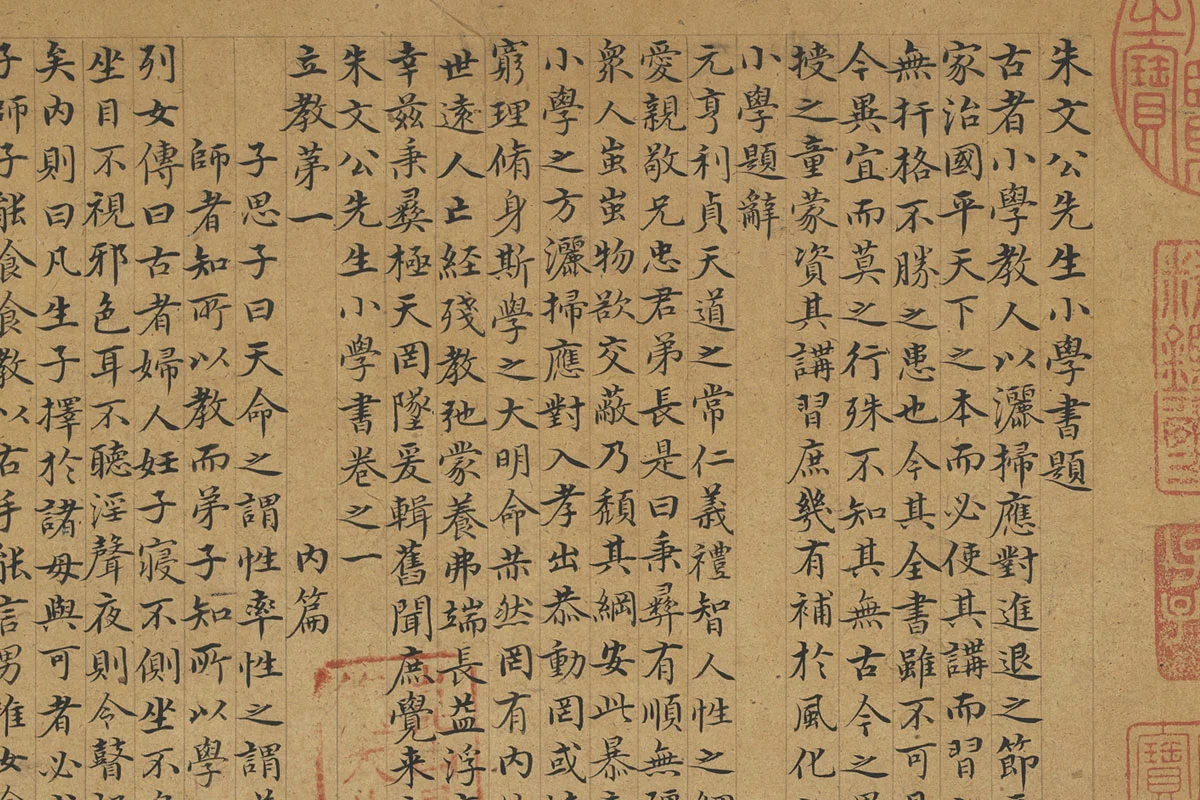 朱文公先生小學書題
古者小學教人以灑掃應對進退之節
家治國平天下之本而必使其講而習
無扞格不勝之患也今其全書雖不可
今異宜而莫之行殊不知其無古今之
授之童蒙資其講習庶幾有補於風化
小學題辭
元亨利貞天道之常仁義禮智人性之綱
愛親敬兄忠君弟長是曰秉彝有順無彊
衆人蚩蚩物欲交蔽乃頹其綱安此暴
小學之方灑掃應對入孝出恭動罔或
窮理脩身斯學之大明命赫然罔有内
世遠人亡經殘教弛蒙養弗端長益浮
幸茲秉彝極天罔墜爰輯舊聞庶覺来
朱文公先生小學書卷之一
立教苐一 内篇
子思子曰天命之謂性率性之謂
師者知所以教而弟子知所以學
列女傳曰古者婦人妊子寢不側坐不
坐目不視邪色耳不聽淫聲夜則令瞽
矣内則曰凡生子擇於諸母與可者必
子師子能食食教以右手能言男唯女